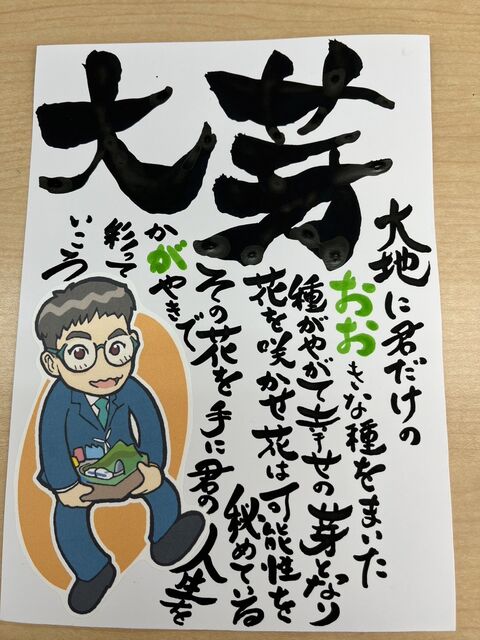 大芽
大地に君だけの
おおきな種をまいた
種がやがて幸せの芽となり
花を咲かせ花は可能性を
秘めている
その花を手に君の人生を
かがやきで
彩って
いこう